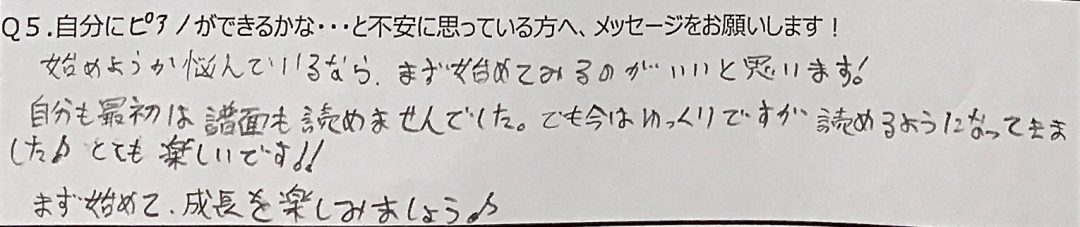 Q5.自分にピアノができるかな・・・と不安に思っている方へ、メッセージをお願いします!
始めようか悩んでいるなら、まず始めてみるのがいいと思います!
自分も最初は譜面も読めませんでした。でも今はゆっくりですが読めるようになってきま
した♪とても楽しいです!!
まず始めて、成長を楽しみましょう♪